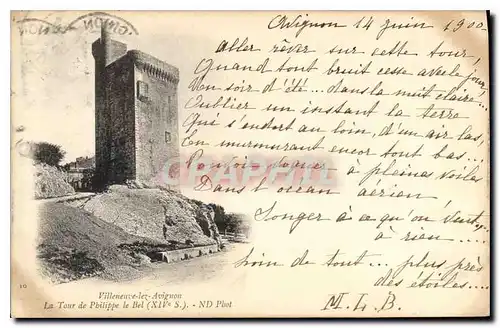 Avignon 14 juin 1900
Aller rêver sur cette tour,
Quand tout bruit cesse avec le jour,
Un soir d'été... dans la nuit claire...
Oublier un instant la terre
Qui s'endort au loin, d'un air las,
En murmurant encor tout bas...
Pouvoir voguer à pleines voiles
Dans l'océan aérien
Songer à ce qu'on veut,
à rien
Loin de tout... plus près
des étoiles...
M.L.B.
CPA
10
Villeneuve-lez-Avignon
La Tour de Philippe le Bel (XIVe S.). - ND Phot